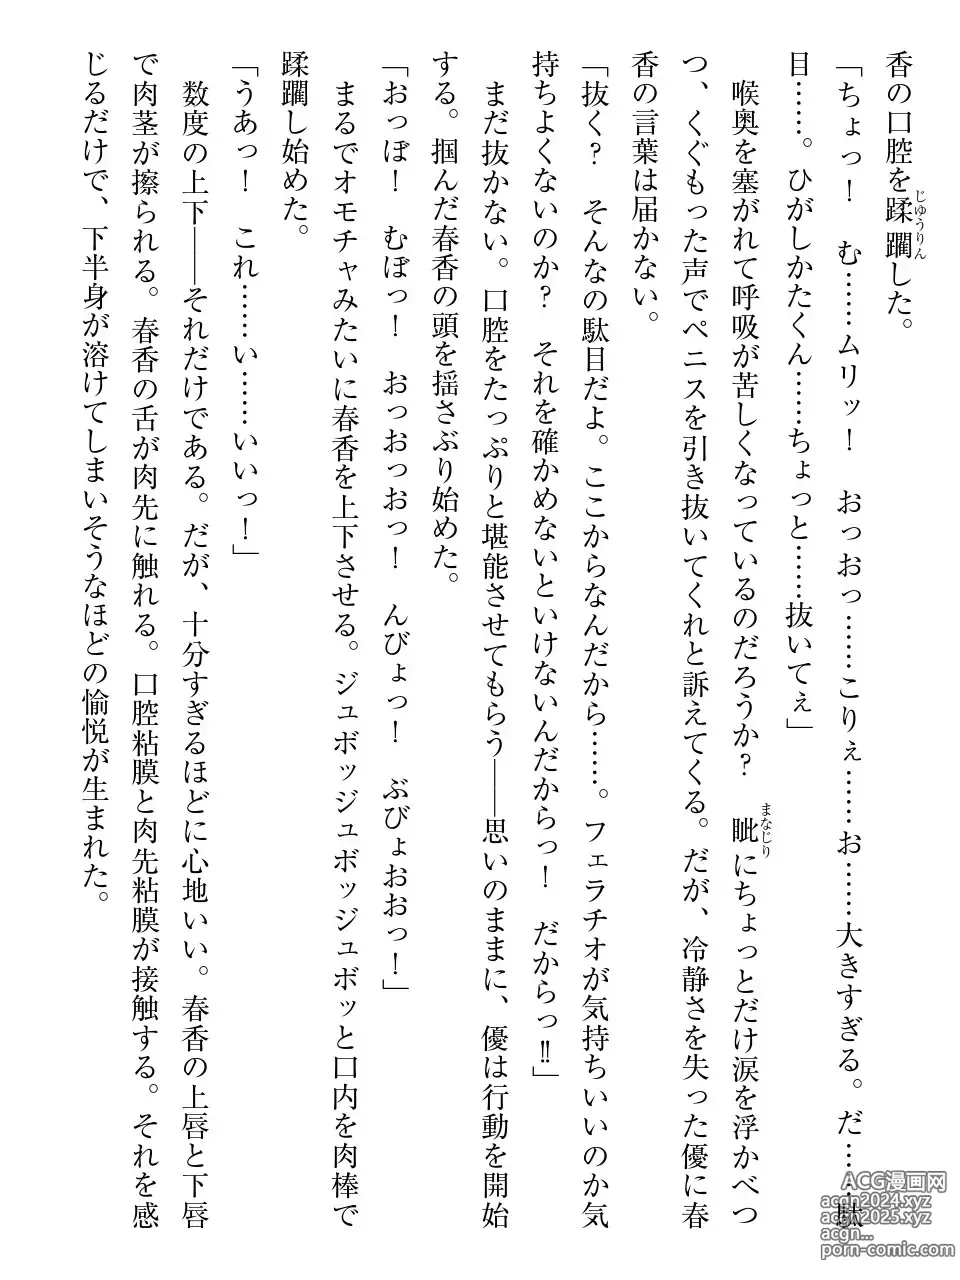 香の口腔を蹂躙した。
じゅうりん
「ちょっ！　む……ムリッ！　おっおっ……こりぇ……お……大きすぎる。だ……駄
目……。ひがしかたくん……ちょっと……抜いてぇ」
　喉奥を塞がれて呼吸が苦しくなっているのだろうか？　眦にちょっとだけ涙を浮かべつ
まなじり
つ、くぐもった声でペニスを引き抜いてくれと訴えてくる。だが、冷静さを失った優に春
香の言葉は届かない。
「抜く？　そんなの駄目だよ。ここからなんだから……。フェラチオが気持ちいいのか気
持ちよくないのか？　それを確かめないといけないんだからっ！　だからっ‼」
　まだ抜かない。口腔をたっぷりと堪能させてもらう――思いのままに、優は行動を開始
する。掴んだ春香の頭を揺さぶり始めた。
「おっぼ！　むぼっ！　おっおっおっ！　んびょっ！　ぶびょおおっ！」
　まるでオモチャみたいに春香を上下させる。ジュボッジュボッジュボッと口内を肉棒で
蹂躙し始めた。
「うあっ！　これ……い……いいっ！」
　数度の上下――それだけである。だが、十分すぎるほどに心地いい。春香の上唇と下唇
で肉茎が擦られる。春香の舌が肉先に触れる。口腔粘膜と肉先粘膜が接触する。それを感
じるだけで、下半身が溶けてしまいそうなほどの愉悦が生まれた。
ACG漫画网
acgn2024.xyz
acgn2025.xyz
acgn...
porn-comic.com